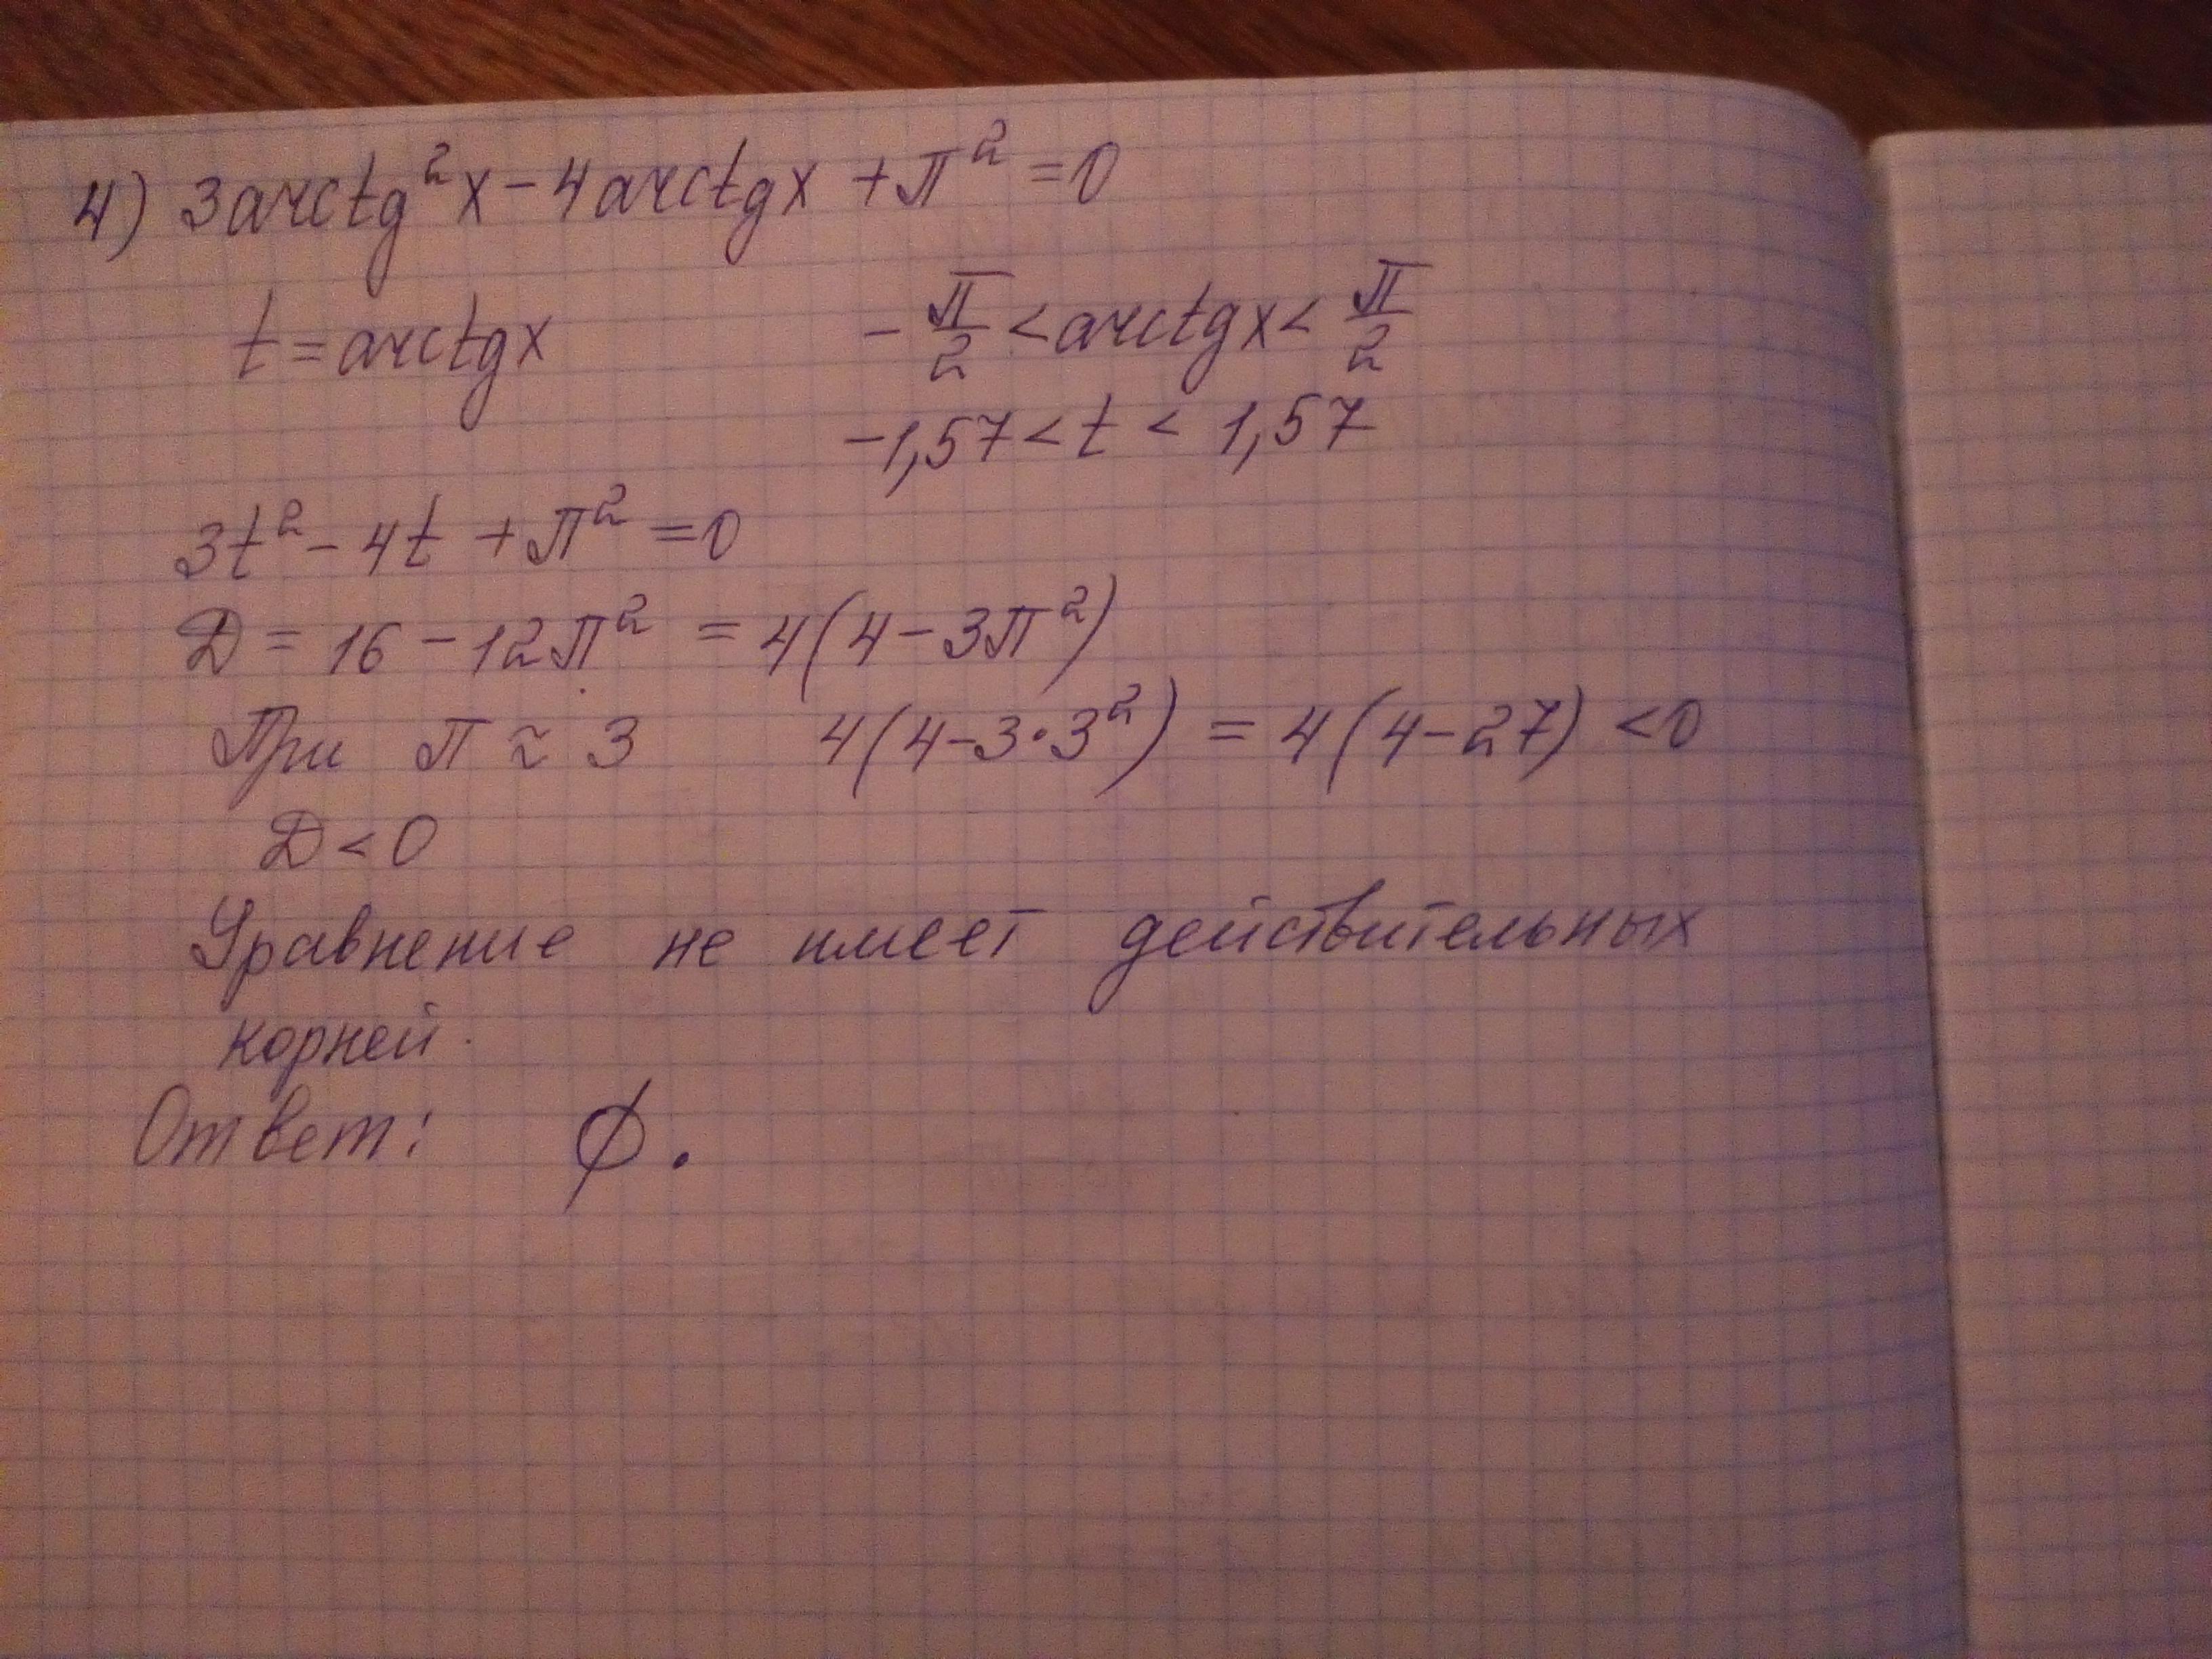 4) 3arctg²x - 4arctgx + π² = 0
t = arctgx   -π/2 < arctgx < π/2
-1,57 < t < 1,57
3t² - 4t + π² = 0
Д = 16 - 12π² = 4(4 - 3π²)
При π ≈ 3   4(4 - 3·3²) = 4(4 - 27) < 0
Д < 0
Уравнение не имеет действительных
корней.
Ответ: ∅.